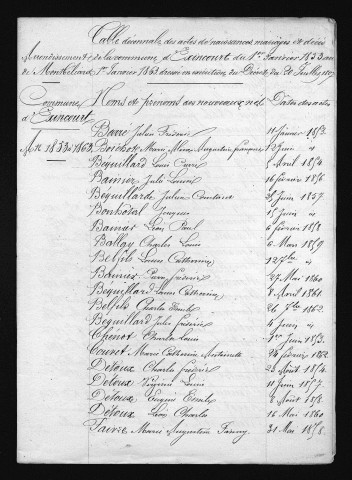 Table décennale des actes de naissances mariages et décès
Arrondissement de la commune d'Exincourt du 1er Janvier 1853 au
de Montbéliard 1er Janvier 1863 dressée en exécution du Décret du 20 Juillet 1807
Commune Noms et prénoms des nouveaux nés Dates des actes
d'Exincourt
Barré Julien Frédéric 11 février 1853.
An 1853 à 1863 Marie 12 Juin "
Béquillard Louis 5 Avril 1854
Banier Jules Louis 16 février 1856
Béquillard Julien Constant 25 Juin 1857
Bonhôtal 15 Juin "
Banier Léon Paul 6 février 1858
Ballay Charles Louis 6 Mars 1859
Belfils Louis Catherine 12 7bre "
Banier Frédéric 27 Mai 1860
Béquillard Louis Catherine 7 Avril 1861
Belfils Charles Emile 26 7bre 1862
Béquillard Julie Frédéric 4 Juin "
Chenot Charles Louis 1er Juin 1853.
Marie Catherine Antoinette 24 février 1862
Detoux Charles Frédéric 20 Août 1854
Detoux Virginie Louise 11 Juin 1857.
Detoux Eugénie Emilie 8 Août 1858
Detoux Léon Charles 16 Mai 1860
Faivre Marie Augustine Fanny 31 Mai 1858.